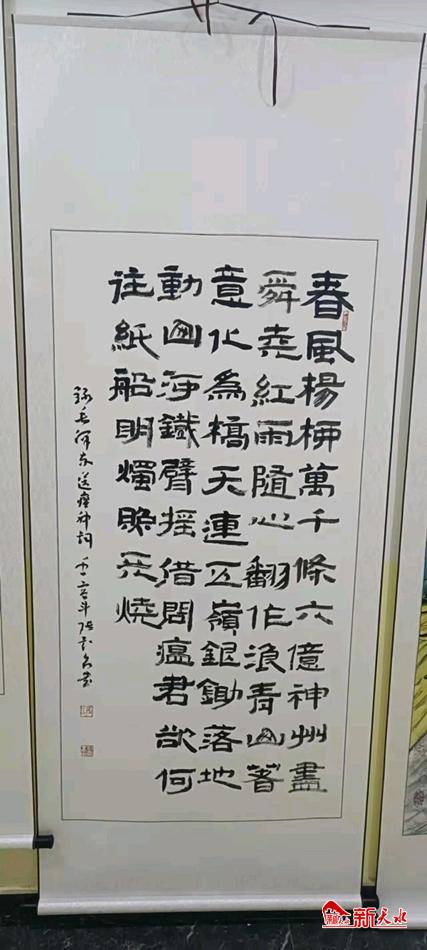 春風楊柳萬千條六億神州盡
舜堯紅雨隨心翻作浪青山著
意化為橋天連五嶺銀鋤落地
動山河鐵臂搖借問瘟君欲何
往紙船明燭照天燒
送瘟神詞
新天水